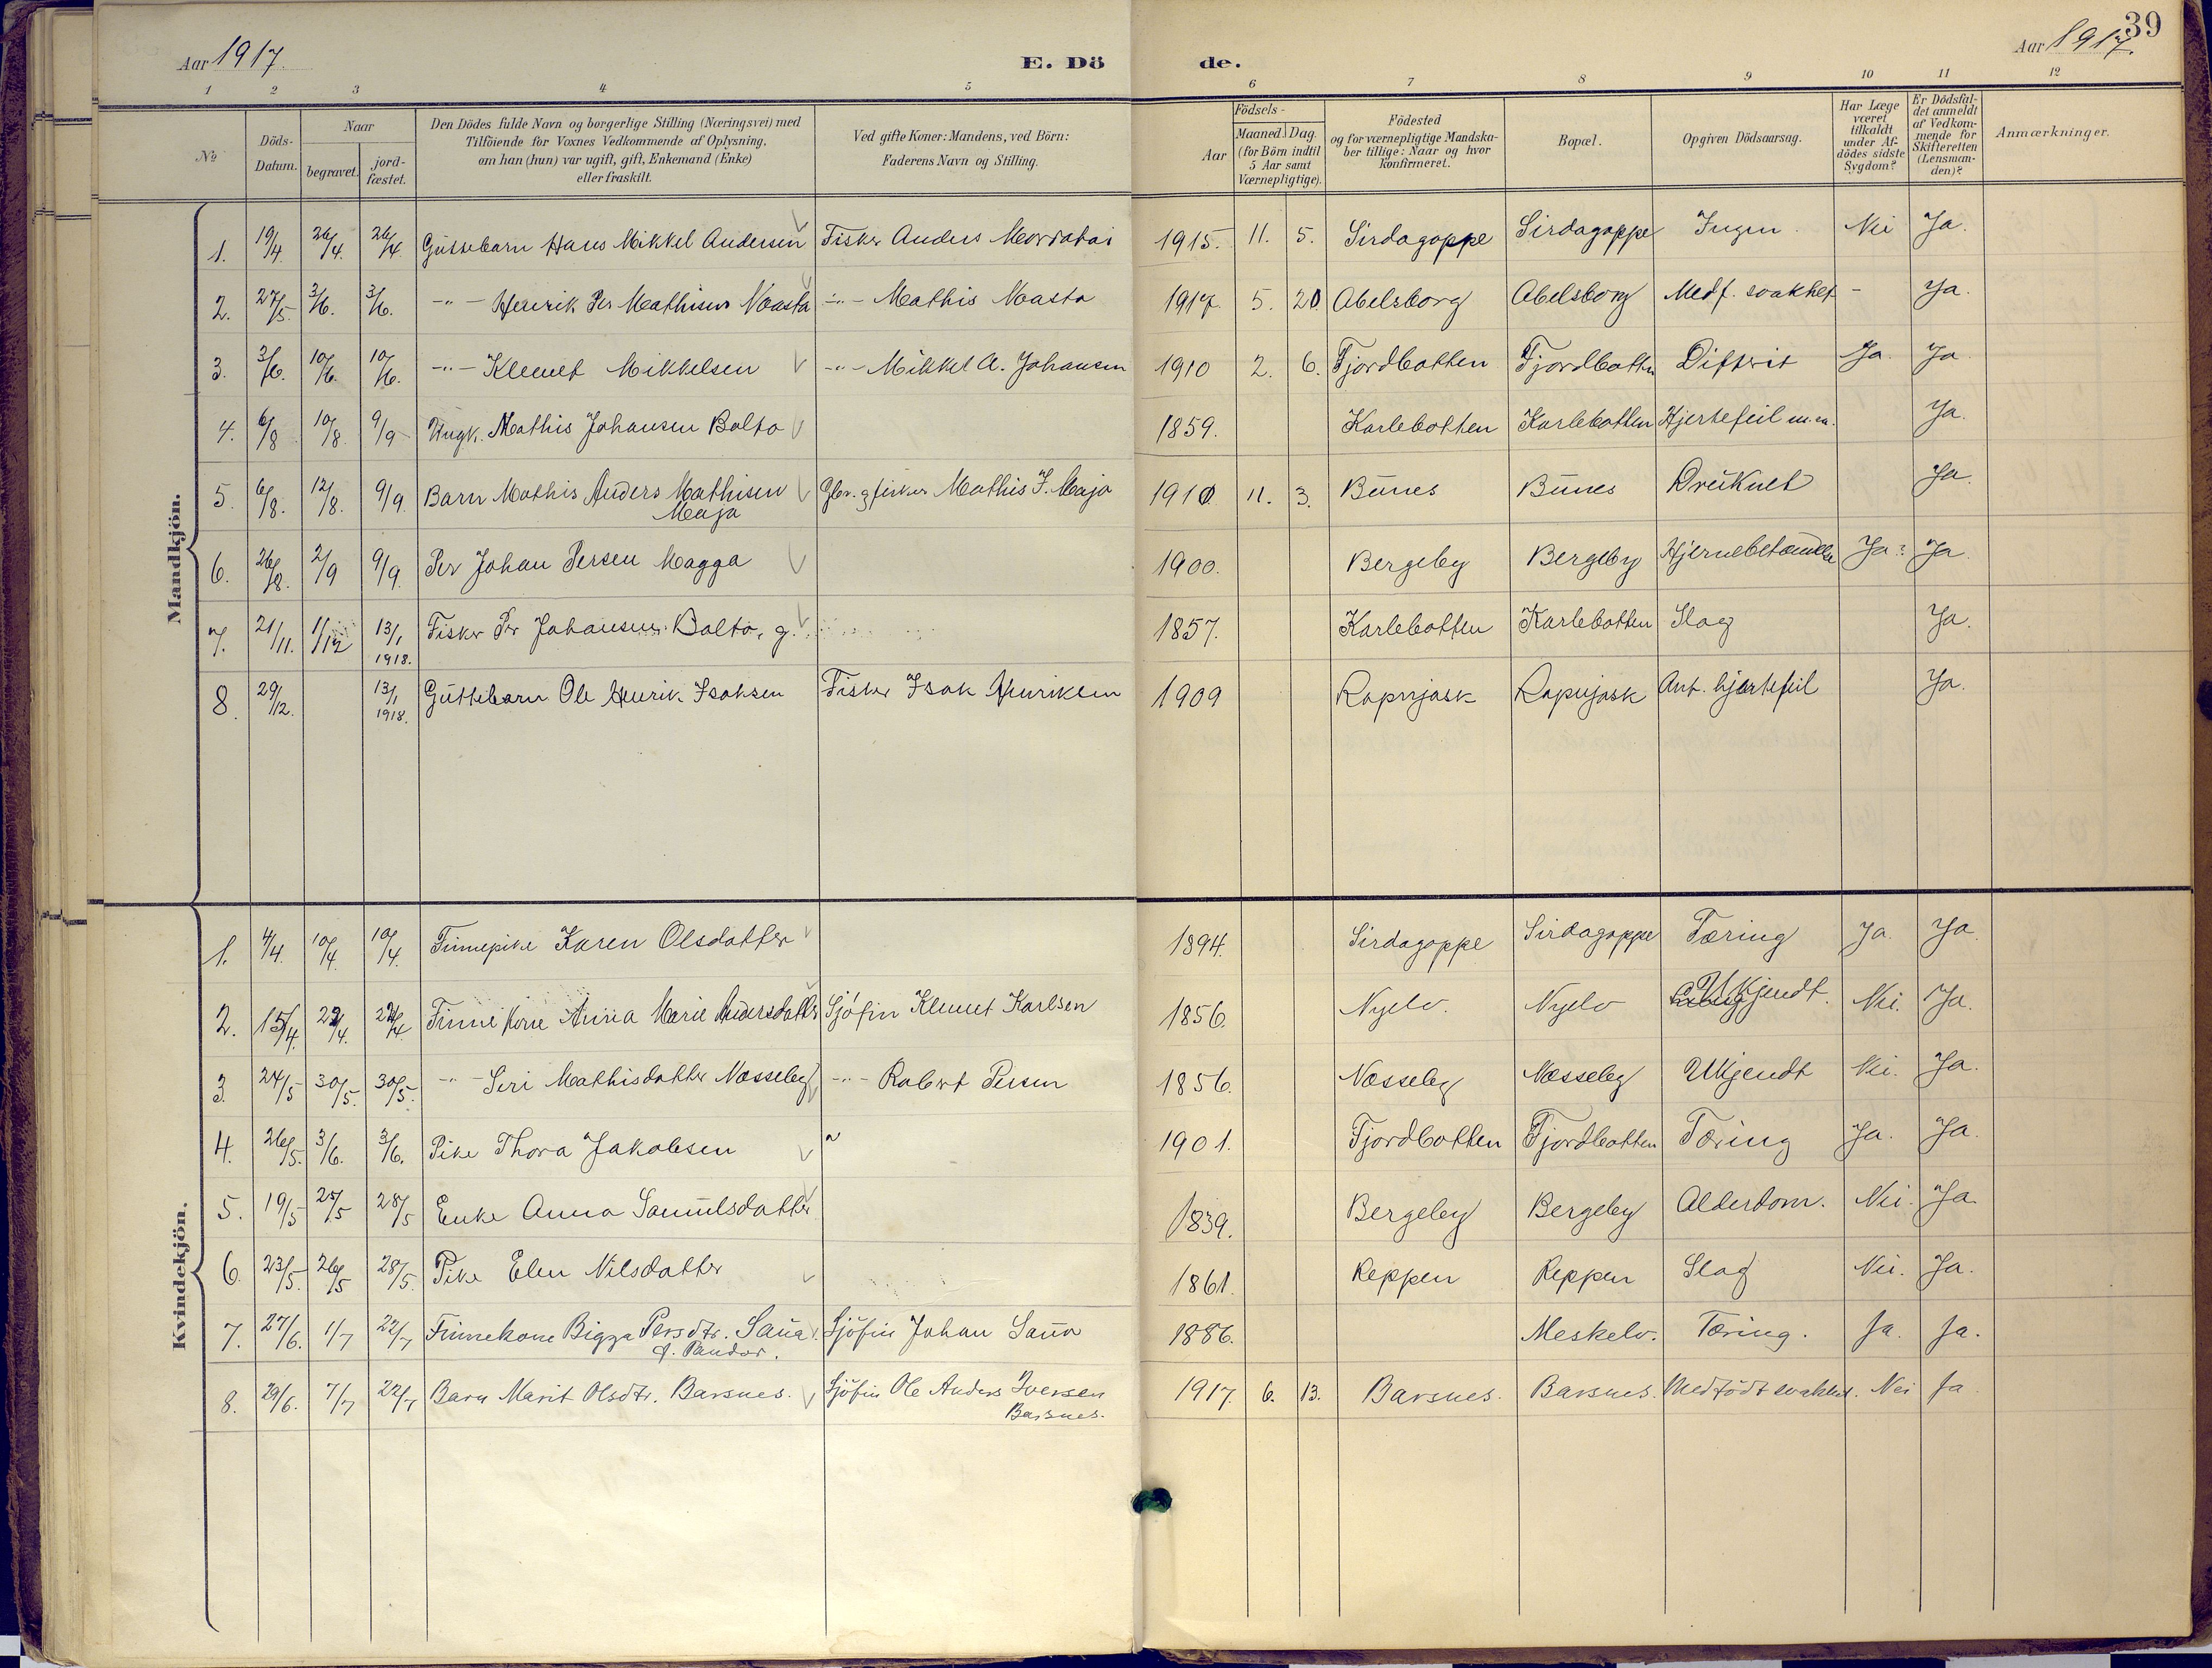 39
Aar 1917.
E. Döde.
Aar 1917.
1 2 3 4 5 6 7 8 9 10 11 12
No
Döds-Datum.
Naar
begravet.
jordfæstet.
Den Dödes fulde Navn og borgerlige Stilling (Næringsvei) med
Tilföiende for Voxnes Vedkommende af Oplysning,
om han (hun) var ugift, gift, Enkemand (Enke)
eller fraskilt.
Ved gifte Koner: Mandens, ved Börn:
Faderens Navn og Stilling.
Aar
Födsels-
Maaned. Dag.
(for Börn indtil
5 Aar samt
Værnepligtige).
Födested
og for værnepligtige Mandska-
ber tillige: Naar og hvor
Konfirmeret.
Bopæl.
Opgiven Dödsaarsag.
Har Læge
været
tilkaldt
under Af-
dödes sidste
Sygdom?
Er Dödsfal-
det anmeldt
af Vedkom-
mende for
Skifteretten
(Lensman-
den)?
Anmærkninger.
Mandkjön.
1. 19/4 26/4. 26/4. Guttebarn Hans Mikkel Andersen Fisker Anders 1915. 11. 5. Sirdagoppe Sirdagoppe Ingen Nei Ja.
2. 27/5. 3/6. 3/6. -"- Henrik Per Mathisen Naasta -"- Mathis Naasta 1917. 5. 20. Abelsborg Abelsborg Medf. svakhet - Ja.
3. 3/6. 10/6. 10/6. -"- Klemet Mikkelsen -"- Mikkel A. Johansen 1910 2. 6. Fjordbotten Fjordbotten Difterit Ja. Ja
4. 6/8 10/8. 9/9 Ungk. Mathis Johansen Balto 1859. Karlebotten Karlebotten Hjertefeil m.m. Ja.
5. 6/8. 12/8. 9/9. Barn Mathis Anders Mathisen Gbr. og fisker Mathis J. Maja 1910 11. 3. Bunes Bunes Druknet Ja.
Maja
6. 26/8. 2/9 9/9. Per Johan Persen Magga 1900. Bergeby Bergeby Hjernebetændelse Ja? Ja.
7. 21/11. 1/12 13/1 Fisker Per Johansen Balto, g. 1857. Karlebotten Karlebotten Slag Ja.
1918.
8. 29/12. 13/1 Guttebarn Ole Henrik Isaksen Fisker Isak Henriksen 1909 Rapnjask Rapnjask Ant. hjertefeil Ja.
1918.
Kvindekjön.
1. 4/4. 10/4. 10/4. Finnepike Karen Olsdatter 1894. Sirdagoppe Sirdagoppe Tæring Ja. Ja
2. 15/4. /4. /4 Finnekone Anna Marie Andersdatter Sjöfin Klemet Karlsen 1856. Nyelv. Nyelv Ukjendt. Nei. Ja.
3. 24/5 30/5. 30/5. -"- Siri Mathisdatter Næsseby -"- Robert Persen 1856. Næsseby Næsseby Ukjendt Nei. Ja.
4. 26/5. 3/6. 3/6. Pike Thora Jakobsen " 1901. Fjordbotten Fjordbotten Tæring Ja. Ja.
5. 19/5 25/5 28/5 Enke Anna Samuelsdatter 1839. Bergeby Bergeby Alderdom. Nei. Ja.
6. 23/5. 26/5 28/5. Pike Elen Nilsdatter 1861. Reppen Reppen Slag Nei. Ja.
7. 27/6. 1/7 22/7 Finnekone Bigga Persdtr. Saua. Sjöfin Johan Saua 1886. Meskelv. Tæring. Ja. Ja.
f. Pandor.
8. 29/6. 7/7 22/7 Barn Marit Olsdtr. Barsnes. Sjöfin Ole Anders Iversen 1917. 6. 13. Barsnes. Barsnes. Medfödt svakhet. Nei Ja.
Barsnes.